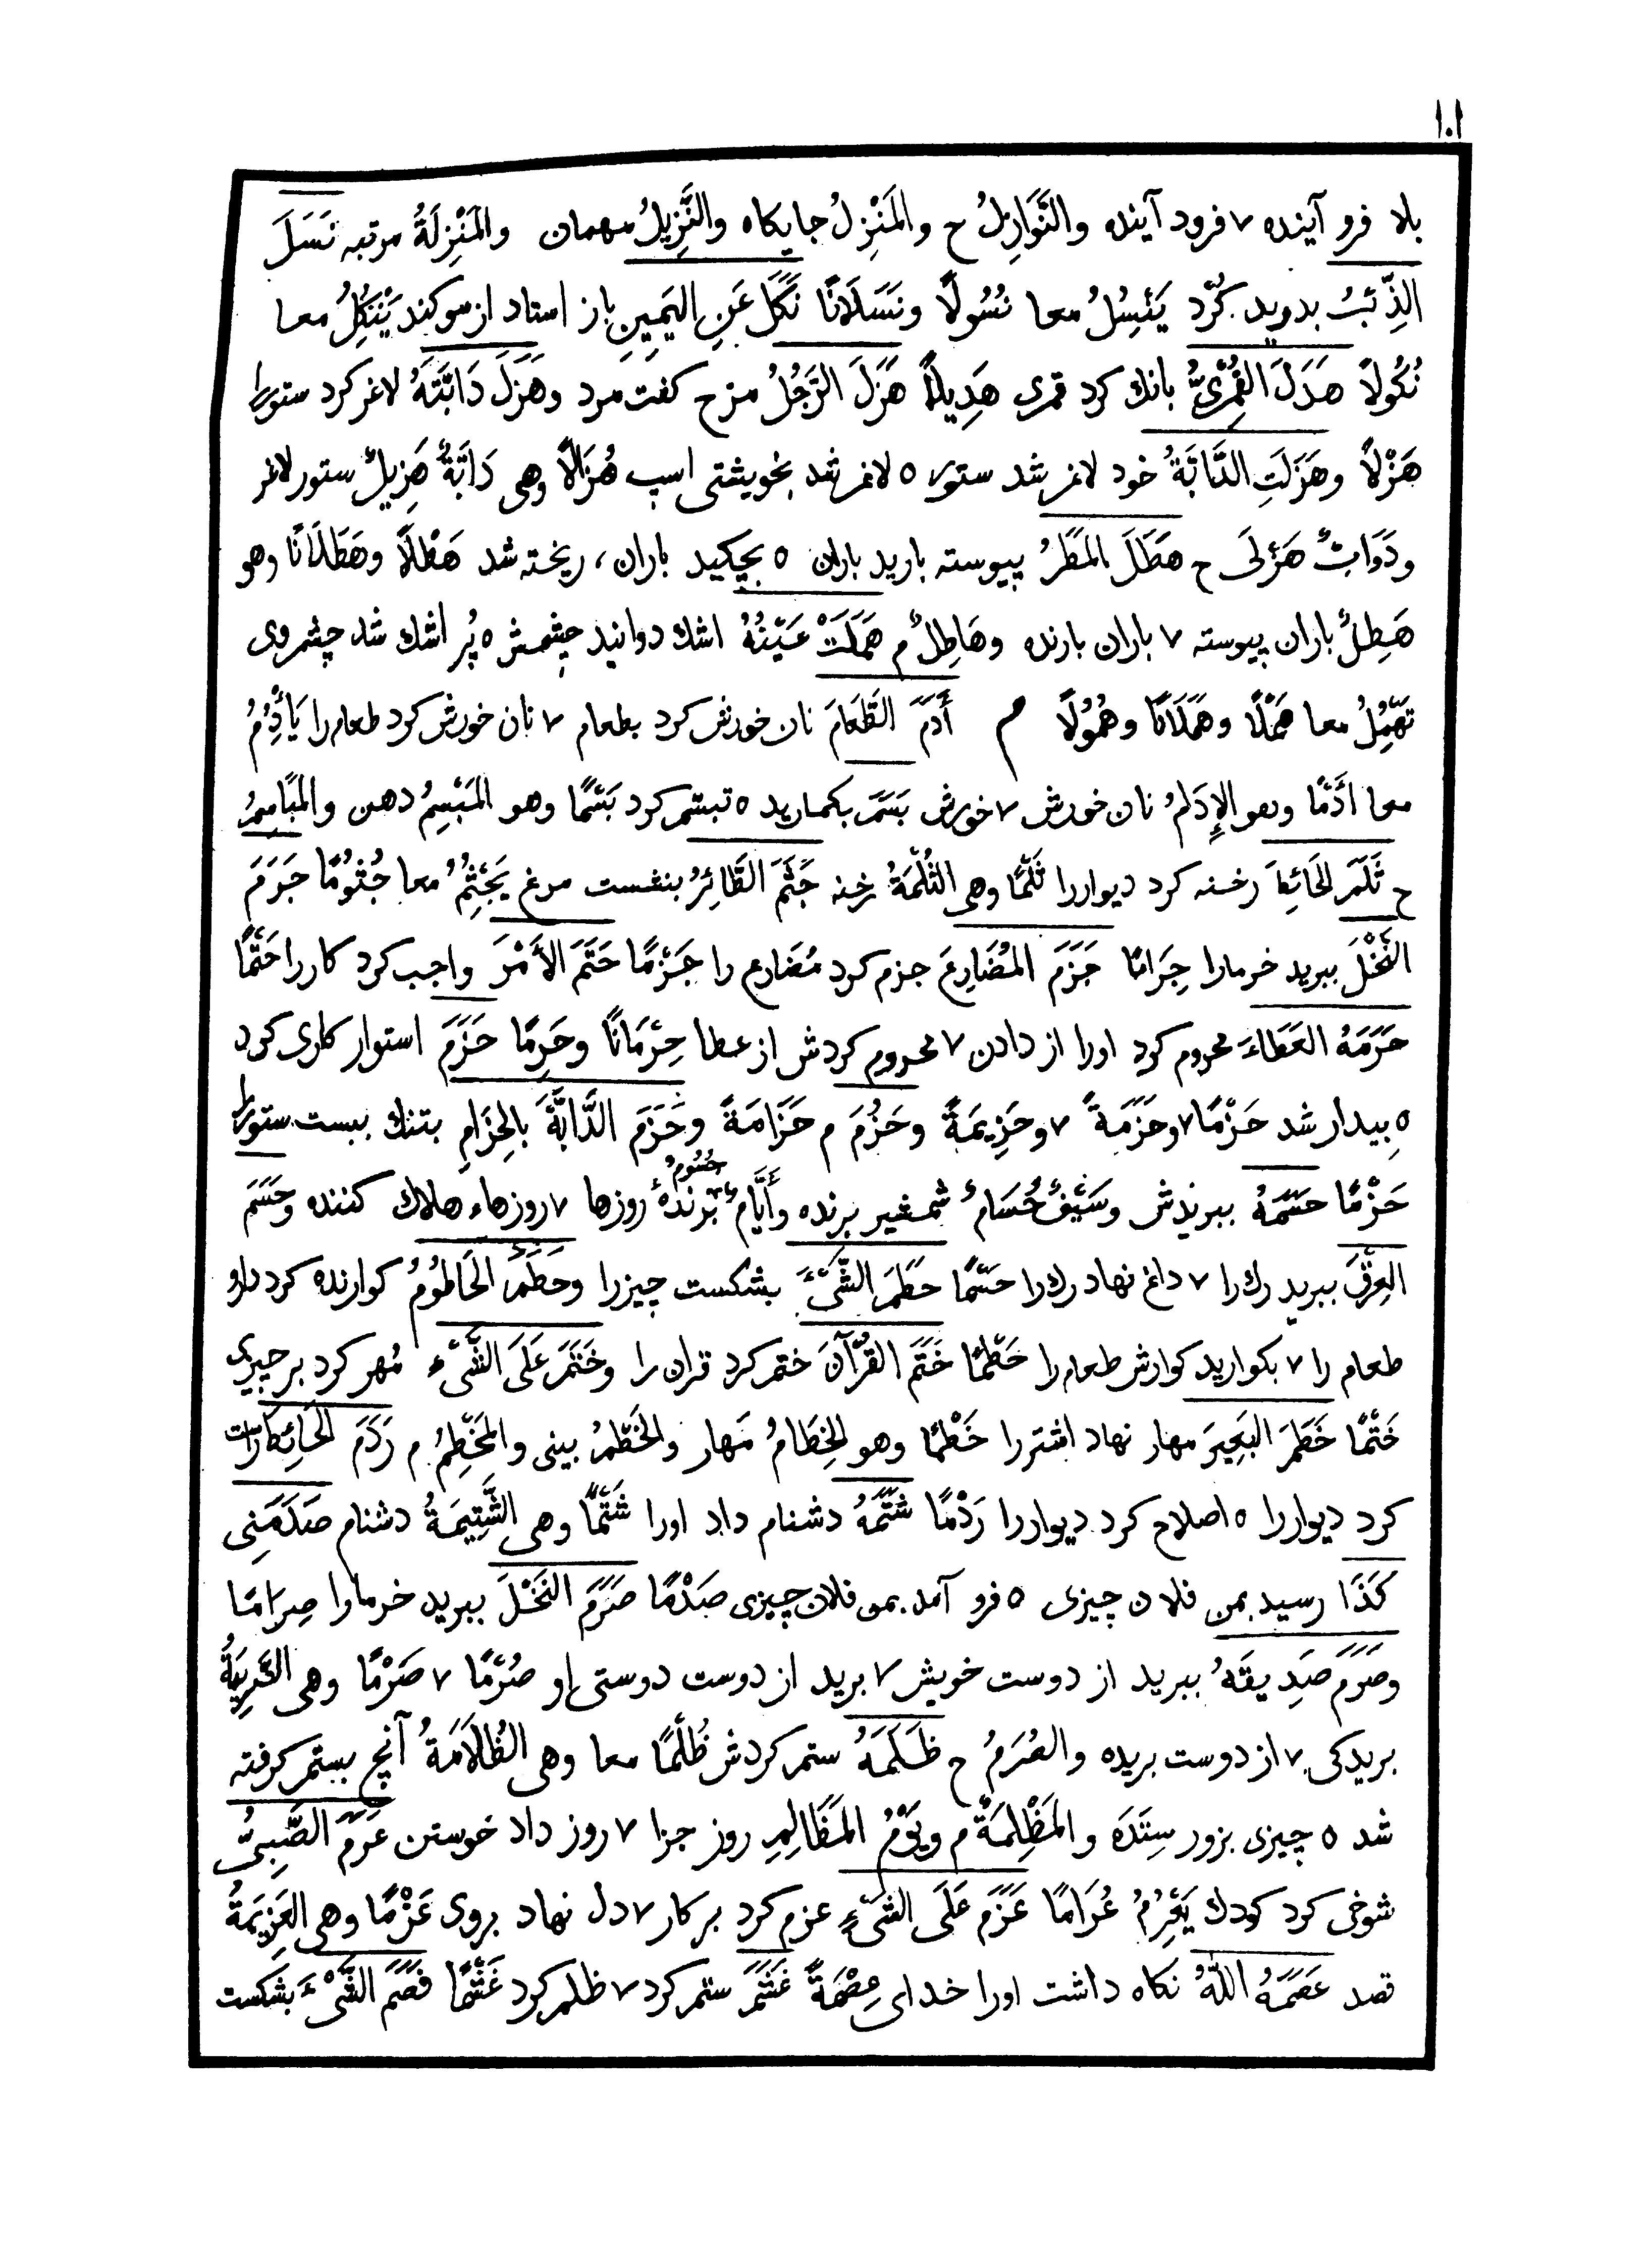 ١٠١
بلا فرو آینده ٧ فرود آینده والنَّوَازِلُ ح والمَنْزِلُ جایکاه والنَّزِیلُ مهمان والمَنْزِلَةُ مرتبه نَسَلَ
الذِّئبُ بدوید کُرد یَنْسِلُ معا نُسُولًا ونَسَلَانًا نَکَلَ عَنِ الیَمِینِ باز استاد از سوکند یَنْکِلُ معا
نُکُولًا هَدَلَ القُمْرِیُّ بانك کرد قمری هَدِیلًا هَزَلَ الرَّجُلُ مزح کفت مرد وهَزَلَ دَابَّتَهُ لاغر کرد ستور را
هَزْلًا وهَزَلَتِ الدَّابَّةُ خود لاغر شد ستور ٥ لاغر شد بخویشتی اسپ هُزَالًا وهی دَابَّةٌ هَزِیلٌ ستور لاغر
ودَوَابٌّ هَزْلَی ح هَطَلَ المَطَرُ پیوسته بارید باران ٥ بچکید باران، ریخته شد هَطْلًا وهَطَلَانًا وهو
هَطِلٌ باران پیوسته ٧ باران بارنده وهَاطِلٌ م هَمَلَتْ عَیْنُهُ اشك دوانید چشمش ٥ پُر اشك شد چشم وی
تَهْمِلُ معا هَمْلًا وهَمَلَانًا وهُمُولًا م أَدَمَ الطَّعَامَ نان خورش کرد بطعام ٧ نان خورش کرد طعام را یَأْدِمُ
معا أَدْمًا وهو الإِدَامُ نان خورش ٧ خورش بَسَمَ بکمارید ٥ تبسّم کرد بَسْمًا وهو المَبْسِمُ دهن والمَبَاسِمُ
ح ثَلَمَ الحَائِطَ رخنه کرد دیوار را ثَلْمًا وهی الثُّلْمَةُ رخنه جَثَمَ الطَّائِرُ بنشست مرغ یَجْثِمُ معا جُثُومًا جَرَمَ
النَّخْلَ ببرید خرما را جِرَامًا جَزَمَ المُضَارِعَ جزم کرد مُضَارع را جَزْمًا حَتَمَ الأَمْرَ واجب کرد کار را حَتْمًا
حَرَمَهُ العَطَاءَ محروم کرد اورا از دادن ٧ محروم کردش از عطا حِرْمَانًا وحَرِمًا حَزَمَ استوار کاری کرد
٥ بیدار شد حَزْمًا ٧ وحَزْمَةً ٧ وحَزِیمَةً وحَزُمَ م حَزَامَةً وحَزَمَ الدَّابَّةَ بِالحِزَامِ بتنك ببست ستور را
حَزْمًا حَسَمَهُ ببریدش وسَیْفٌ حُسَامٌ شمشیر برنده وأَیَّامٌ حُسُومٌ برنده روزها ٧ روزهاء هلاك کننده وحَسَمَ
العِرْقَ ببرید رك را ٧ داغ نهاد رك را حَسْمًا حَطَمَ الشَّیْءَ بشکست چیز را وحَطَمَ الحَاطُومُ کوارنده کرد دارو
طعام را ٧ بکوارید کوارش طعام را حَطْمًا خَتَمَ القُرْآنَ ختم کرد قران را وخَتَمَ عَلَی الشَّیْءِ مُهر کرد بر چیزی
خَتْمًا خَطَمَ البَعِیرَ مهار نهاد اشتر را خَطْمًا وهو الخِطَامُ مَهار والخَطْمُ بینی والمَخْطِمُ م رَدَمَ الحَائِطَ راست
کرد دیوار را ٥ اصلاح کرد دیوار را رَدْمًا شَتَمَهُ دشنام داد اورا شَتْمًا وهی الشَّتِیمَةُ دشنام صَدَمَنِی
کَذَا رسید بمن فلان چیزی ٥ فرو آمد بمن فلان چیزی صَدْمًا صَرَمَ النَخْلَ ببرید خرما را صِرَامًا
وصَرَمَ صَدِیقَهُ ببرید از دوست خویش ٧ برید از دوست دوستی او صُرْمًا ٧ صَرْمًا وهی الصَّرِیمَةُ
بریدکی ٧ از دوست بریده والصُرَمُ ح ظَلَمَهُ ستم کردش ظُلْمًا معا وهی الظُلَامَةُ آنچ بستم کرفته
شد ٥ چیزی بزور سِتَدَه والمَظْلِمَةُ م ویَوْمُ المَظَالِمِ روز جزا ٧ روز داد خوستن عَرَمَ الصَّبِیُّ
شوخی کرد کودك یَعْرِمُ عُرَامًا عَزَمَ عَلَی الشَیْءِ عزم کرد بر کار ٧ دل نهاد بروی عَزْمًا وهی العَزِیمَةُ
قصد عَصَمَهُ اللّٰهُ نکاه داشت اورا خدای عِصْمَةً غَشَمَ ستم کرد ٧ ظلم کرد غَشْمًا فَصَمَ الشَّیْءَ بشکست